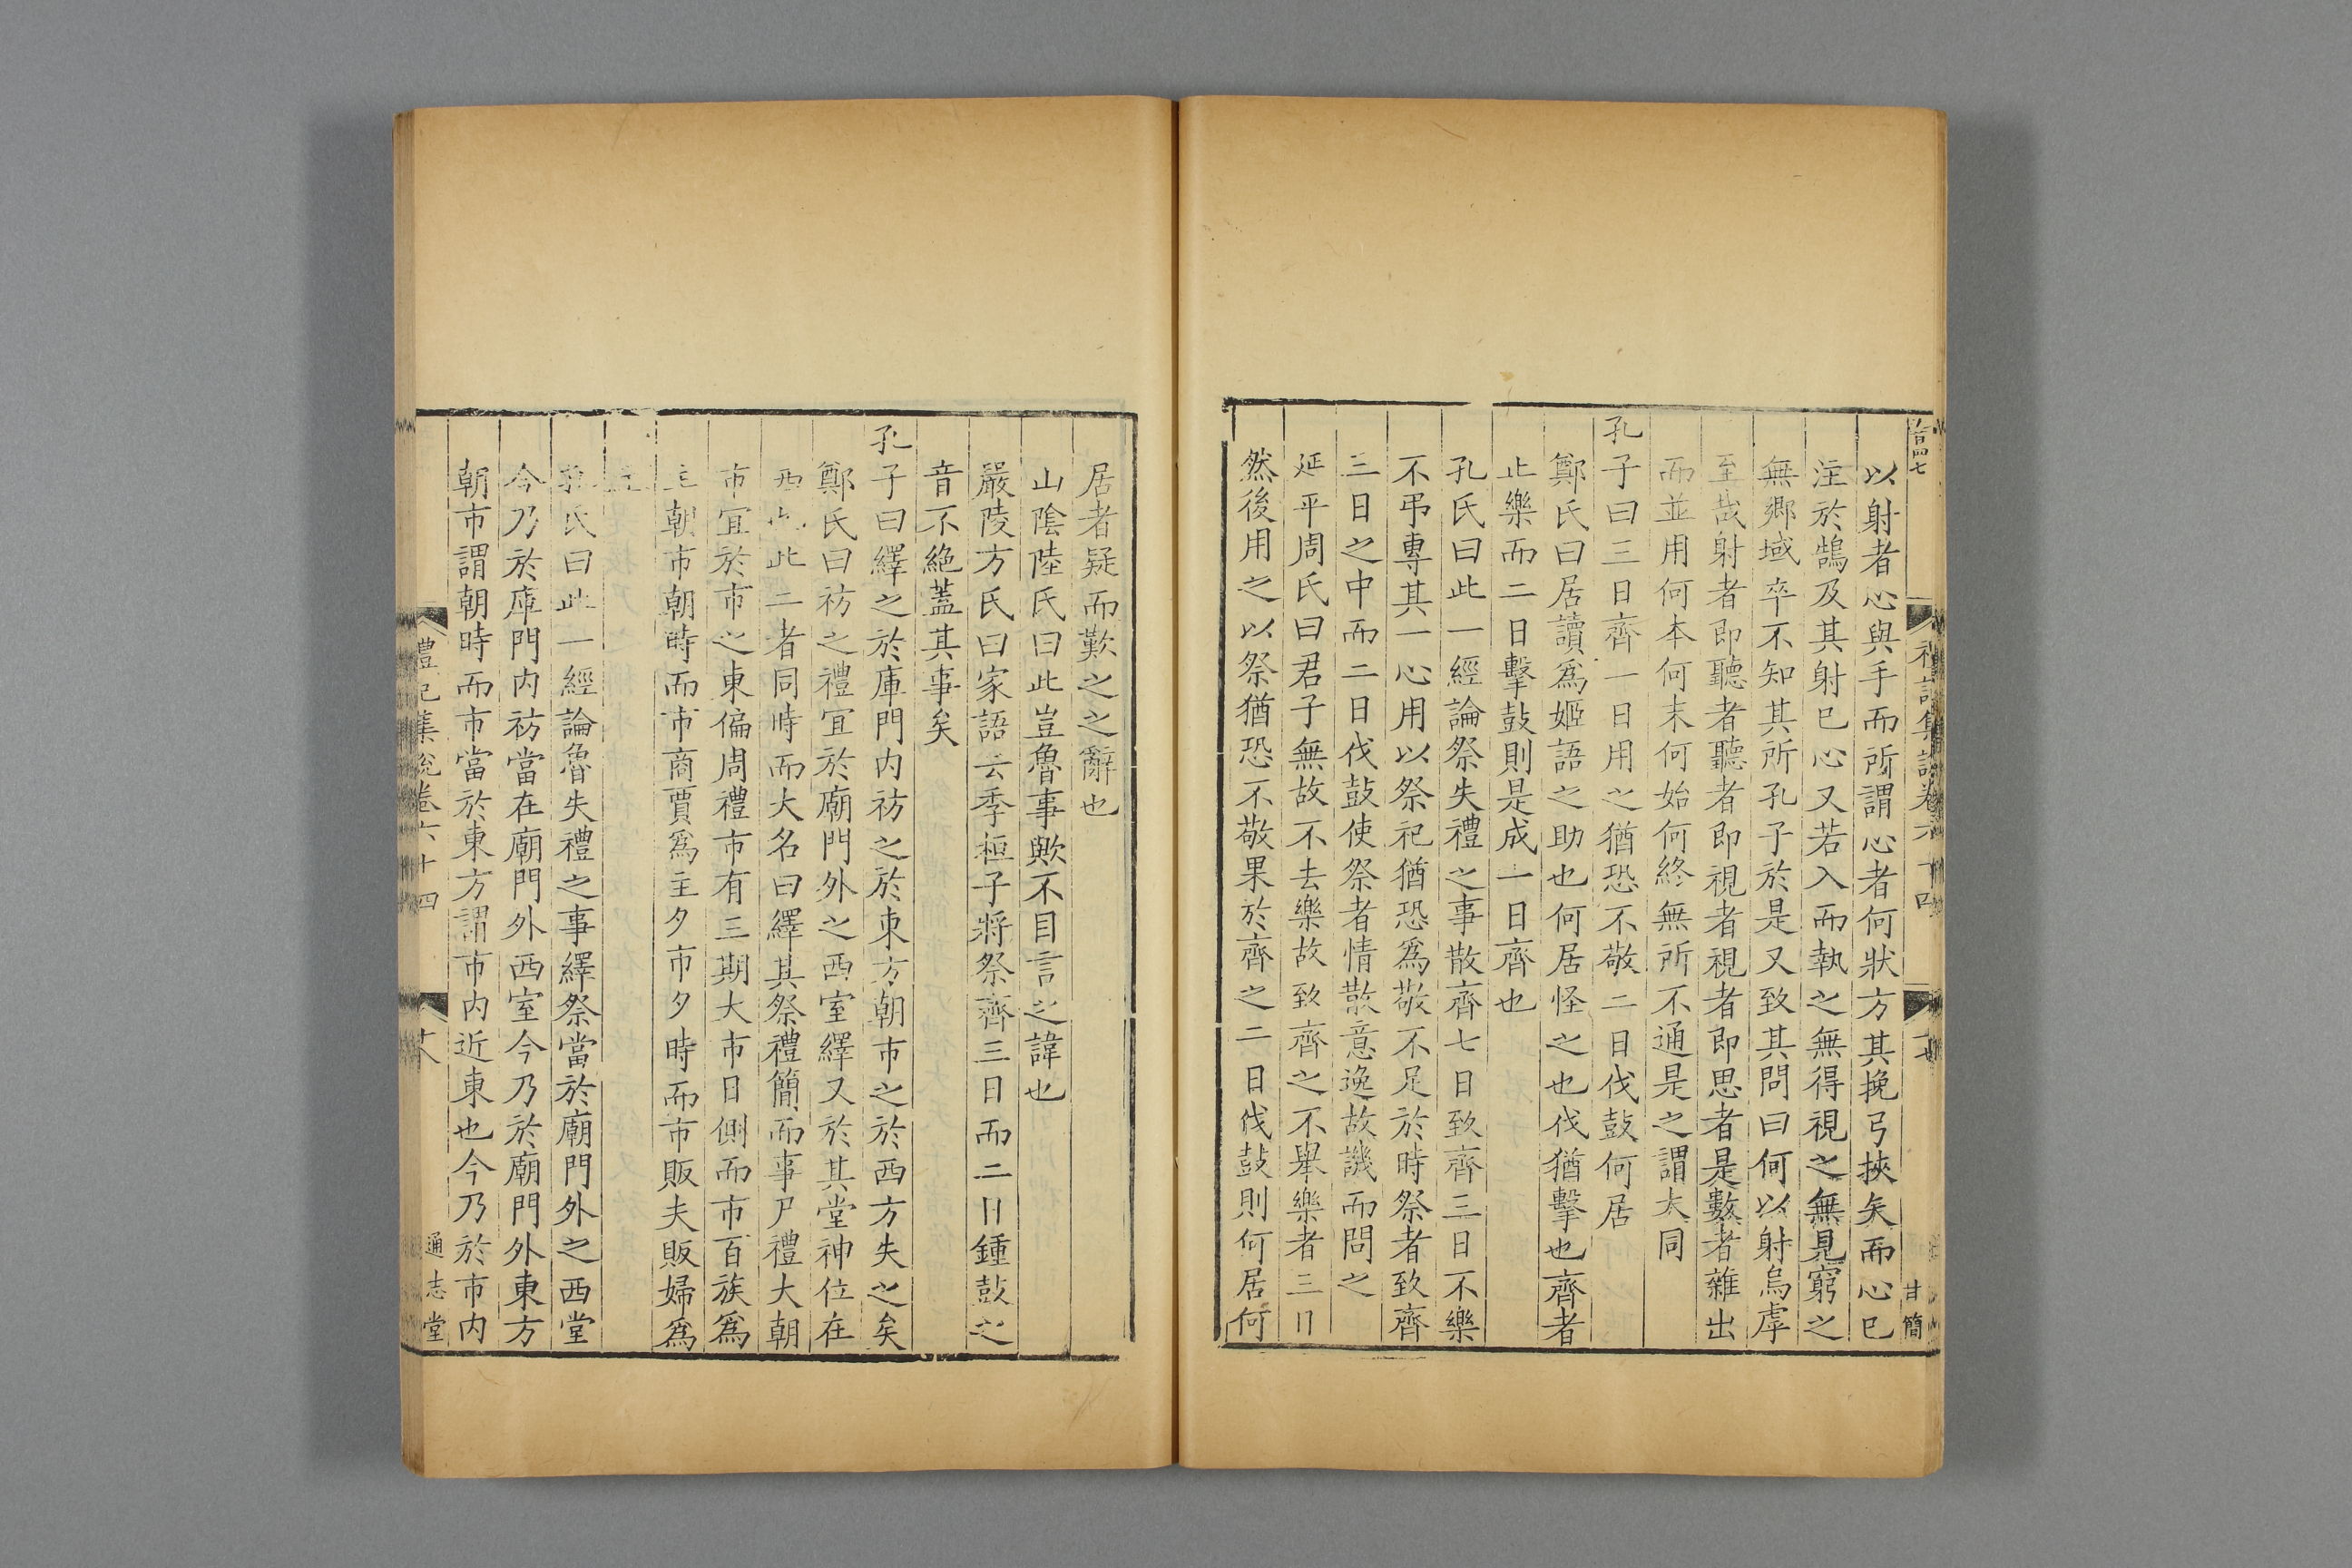 以射者心與手而所謂心者何狀方其挽弓挾矢而心已
注於鵠及其射已心又若入而執之無得視之無見窮之
無鄉域卒不知其所孔子於是又致其問曰何以射烏虖
至哉射者即聽者聽者即視者視者即思者是數者雜出
而並用何本何末何始何終無所不通是之謂大同
孔子曰三日齊一日用之猶恐不敬二日伐鼓何居
鄭氏曰居讀爲姬語之助也何居怪之也伐猶擊也齊者
止樂而二日擊鼓則是成一日齊也
孔氏曰此一經論祭失禮之事散齊七日致齊三日不樂
不弔專其一心用以祭祀猶恐爲敬不足於時祭者致齊
三日之中而二日伐鼓使祭者情散意逸故譏而問之
延平周氏曰君子無故不去樂故致齊之不舉樂者三日
然後用之以祭猶恐不敬果於齊之二日伐鼓則何居何
居者疑而歎之之辭也
山陰陸氏曰此豈魯事歟不目言之諱也
嚴陵方氏曰家語云季桓子將祭齊三日而二日鍾鼓之
音不絶蓋其事矣
孔子曰繹之於庫門内祊之於東方朝市之於西方失之矣
鄭氏曰祊之禮宜於廟門外之西室繹又於其堂神位在
西也此二者同時而大名曰繹其祭禮簡而事尸禮大朝
市宜於市之東偏周禮市有三期大市日側而市百族爲
主朝市朝時而市商賈爲主夕市夕時而市販夫販婦爲
主
孔氏曰此一經論魯失禮之事繹祭當於廟門外之西堂
今乃於庫門内祊當在廟門外西室今乃於廟門外東方
朝市謂朝時而市當於東方謂市内近東也今乃於市内
禮記集說卷六十四
十八
通志堂